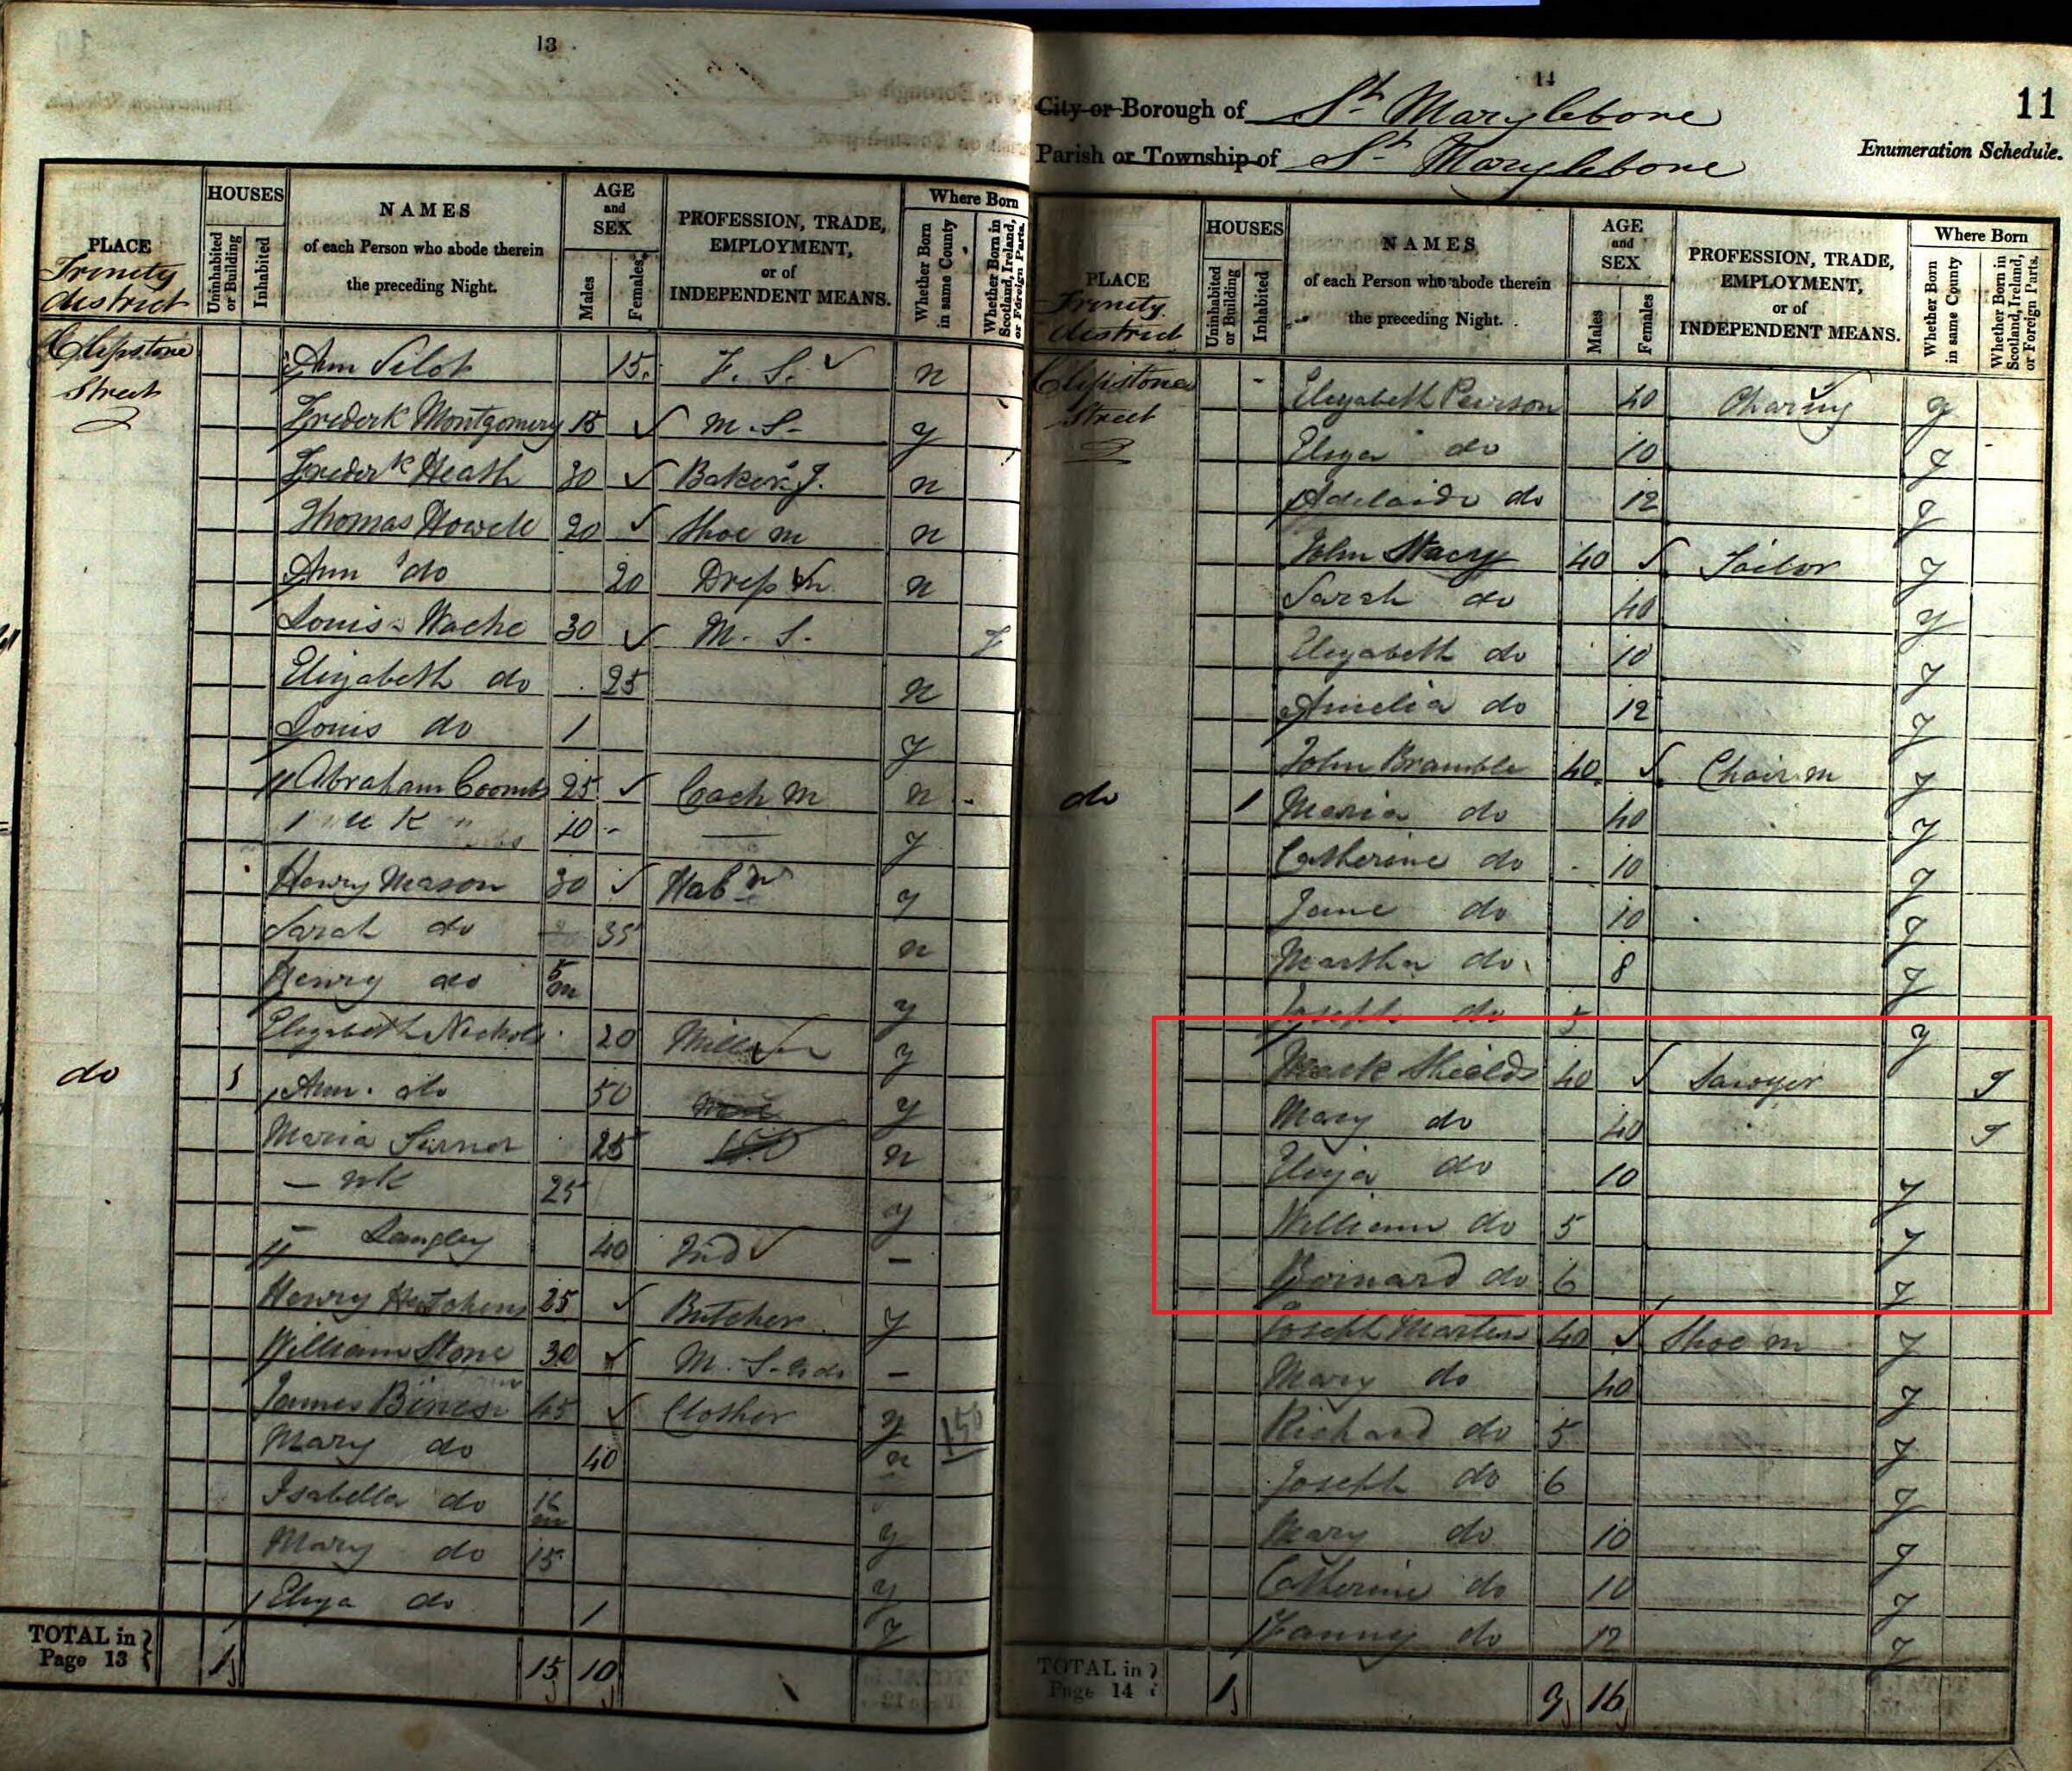 13
PLACE
Trinity
district
HOUSES
Uninhabited or Building
Inhabited
NAMES
of each Person who abode therein
the preceding Night.
AGE
and
SEX
Males
Females
PROFESSION, TRADE,
EMPLOYMENT,
or of
INDEPENDENT MEANS.
Where Born
Whether Born in same County
Whether Born in Scotland, Ireland, or Foreign Parts.
Clipstone
Street
Ann 15 F. S. n
Frederk Montgomery 15 M. S. y
Frederk Heath 30 Baker J. n
Thomas Howell 20 Shoe m n
Ann do 20 Dress m n
Louis Wache 30 M. S. F
Elizabeth do 25 n
Louis do 1 y
Abraham Coombs 25 Coach m n
10 y
Henry Mason 30 y
Sarah do 35 n
Henry do 5 m y
Elizabeth Nichols 20 y
do 1 Ann do 50 y
Maria 25 n
— nk 25 y
— Langley 40 Ind —
Henry Hutchens 25 Butcher y
William Stone 30 M. S. —
James 45 Clothier y 150
Mary do 40 n
Isabella do y
Mary do 15 y
Eliza do 1 y
TOTAL in
Page 13 1 15 10
14
11
City or Borough of St Marylebone
Parish or Township of St Marylebone
Enumeration Schedule.
PLACE
Trinity
district
HOUSES
Uninhabited or Building
Inhabited
NAMES
of each Person who abode therein
the preceding Night.
AGE
and
SEX
Males
Females
PROFESSION, TRADE,
EMPLOYMENT,
or of
INDEPENDENT MEANS.
Where Born
Whether Born in same County
Whether Born in Scotland, Ireland, or Foreign Parts.
Clipstone
Street
Elizabeth Pearson 40 Charing y
Eliza do 10 y
Adelaide do 12 y
John Stacy 40 Tailor y
Sarah do 40 y
Elizabeth do 10 y
Amelia do 12 y
John Bramble 40 Chair m y
do 1 Maria do 40 y
Catherine do 10 y
Jane do 10 y
Martha do 8 y
Joseph do 5 y
Mark Shields 40 Sawyer I
Mary do 40 I
Eliza do 10 y
William do 5 y
Bernard do 6 y
Joseph Martin 40 Shoe m y
Mary do 40 y
Richard do 5 y
Joseph do 6 y
Mary do 10 y
Catherine do 10 y
Fanny do 12 y
TOTAL in
Page 14 1 9 16